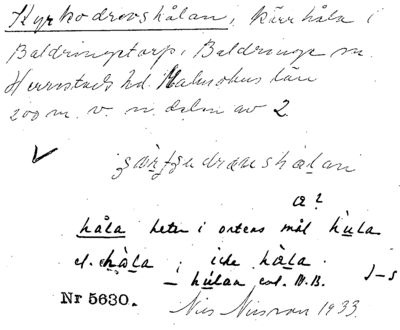 Kyrkodrevshålan, kärrhåla i
Baldringetorp, Baldringe sn.
Herrestads hd. Malmöhus län
200 m. v. n. delen av 2.
✓
hålan
a?
håla heter i ortens mål hula
el. håla ; icke håla. J-s
– hulan enl. N.B.
Nr 5630. Nils Nilsson 1933.